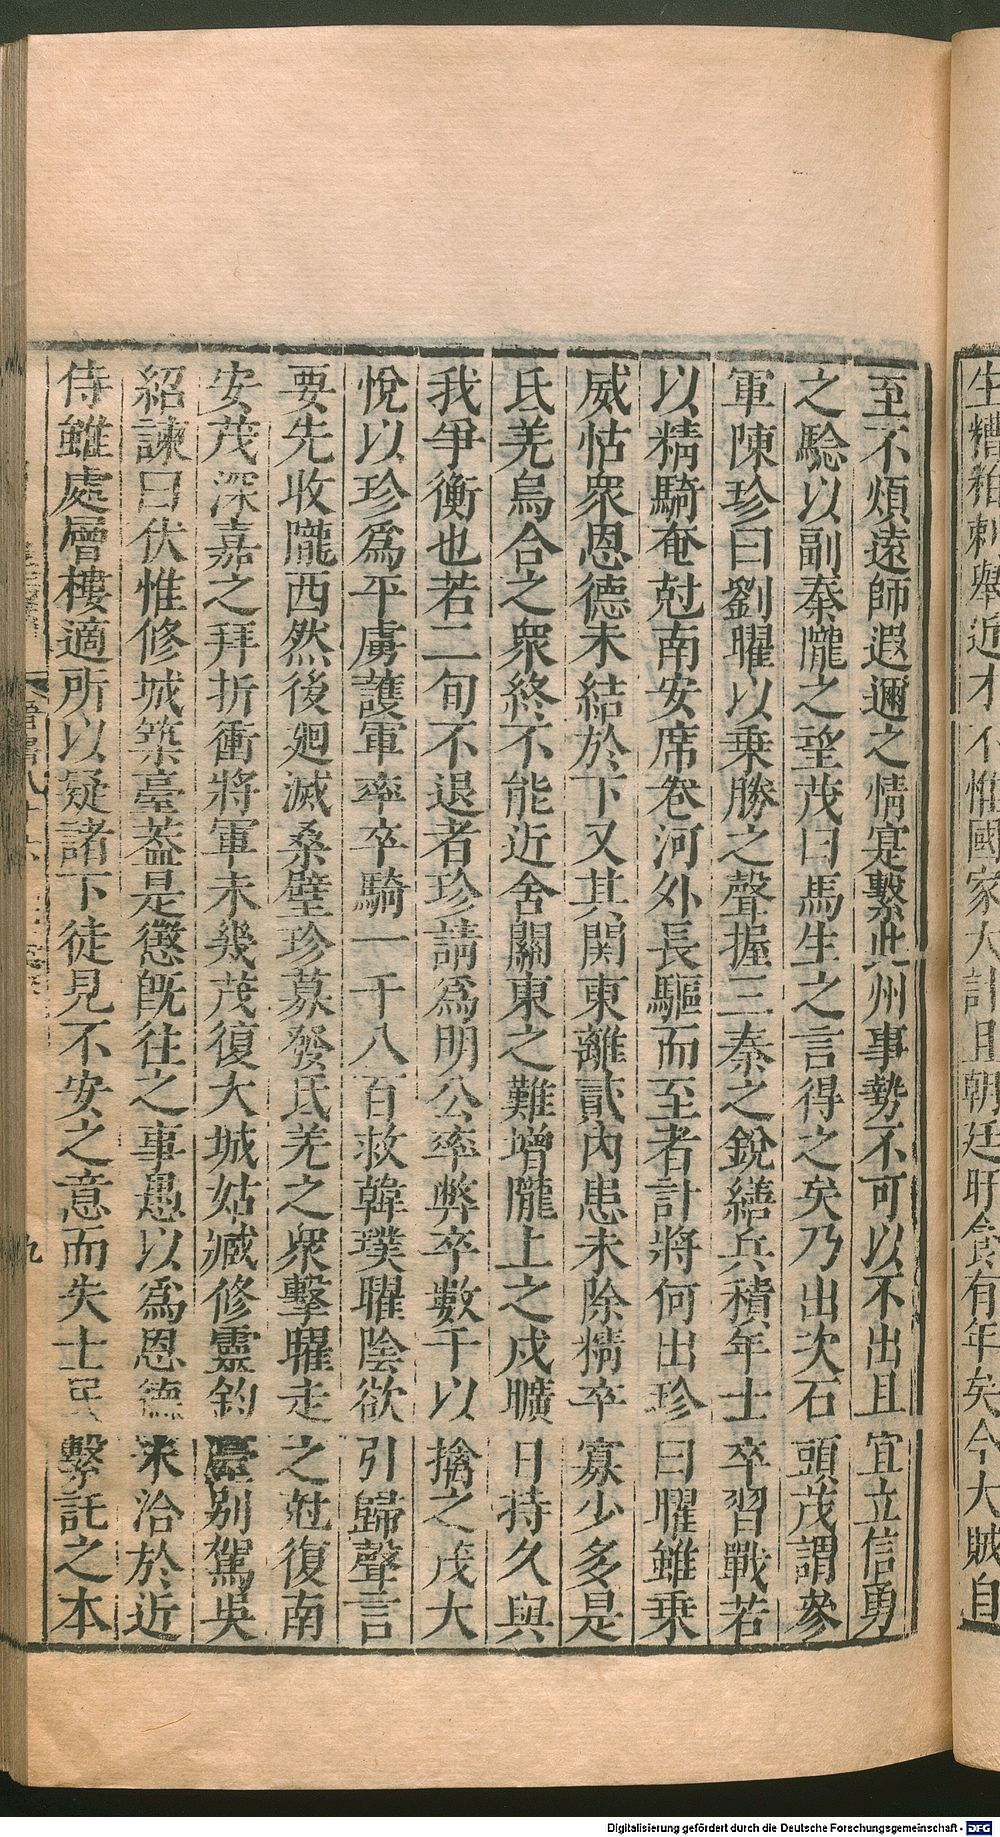 生糟粕刺舉近才不惟國家大計且朝廷旰食有年矣今大賊自
至不煩遠師遐邇之情寔繫此州事勢不可以不出且宜立信勇
之驗以副秦隴之望茂曰馬生之言得之矣乃出次石頭茂謂參
軍陳珍曰劉曜以乗勝之聲握三秦之銳繕兵積年士卒習戰若
以精騎奄尅南安席卷河外長驅而至者計將何出珍曰曜雖乗
威怙衆恩德未結於下又其関東離貳內患未除精卒寡少多是
氐羌烏合之衆終不能近舍關東之難增隴上之戍曠日持久與
我爭衡也若二旬不退者珍請爲明公率弊卒數千以擒之茂大
悅以珍爲平虜護軍率卒騎一千八百救韓璞曜陰欲引歸聲言
要先收隴西然後廻滅桑壁珍募發氐羌之衆擊曜走之尅復南
安茂深嘉之拜折衝將軍未幾茂復大城姑臧修靈鈞臺別駕吳
紹諫曰伏惟修城築臺葢是懲旣往之事愚以爲恩德未洽於近
侍雖處層樓適所以疑諸下徒見不安之意而失士民繫託之本
晉書八十六
九
Digitalisierung gefördert durch die Deutsche Forschungsgemeinschaft - DFG